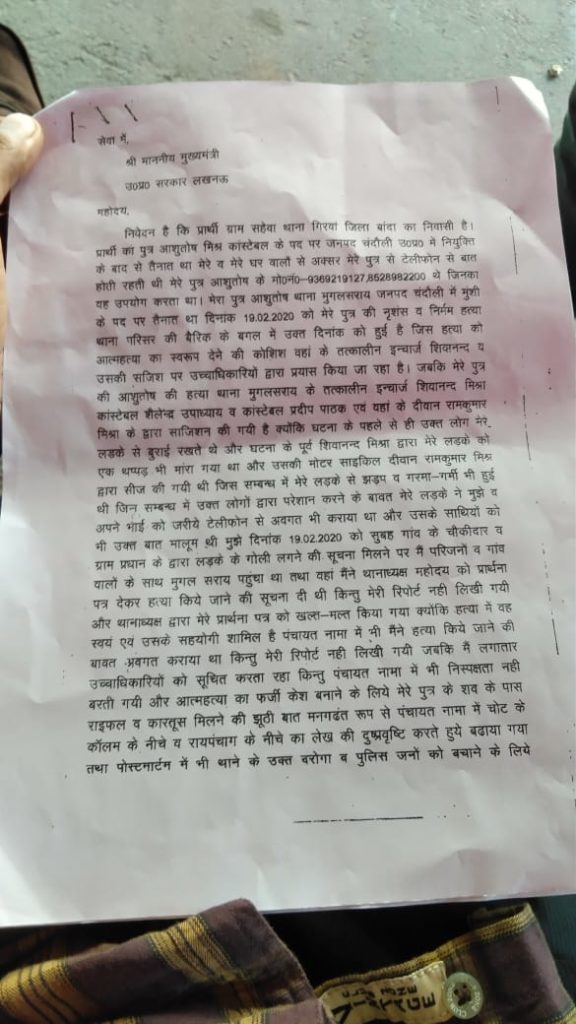 सेवा में,
श्री माननीय मुख्यमंत्री
उ०प्र० सरकार लखनऊ
महोदय,
निवेदन है कि प्रार्थी ग्राम सहेवा थाना गिरवां जिला बांदा का निवासी है।
प्रार्थी का पुत्र आशुतोष मिश्र कांस्टेबल के पद पर जनपद चंदौली उ०प्र० में नियुक्ति
के बाद से तैनात था मेरे व मेरे घर वालों से अक्सर मेरे पुत्र से टेलीफोन से बात
होती रहती थी मेरे पुत्र आशुतोष के मो०नं०-9369219127,8528982200 थे जिनका
वह उपयोग करता था। मेरा पुत्र आशुतोष थाना मुगलसराय जनपद चंदौली में मुंशी
के पद पर तैनात था दिनांक 19.02.2020 को मेरे पुत्र की नृशंस व निर्मम हत्या
थाना परिसर की बैरिक के बगल में उक्त दिनांक को हुई है जिस हत्या को
आत्महत्या का स्वरूप देने की कोशिश वहां के तत्कालीन इन्चार्ज शिवानन्द व
उसकी सजिश पर उच्चाधिकारियों द्वारा प्रयास किया जा रहा है। जबकि मेरे पुत्र
की आशुतोष की हत्या थाना मुगलसराय के तत्कालीन इन्चार्ज शिवानन्द मिश्रा
कांस्टेबल शैलेन्द्र उपाध्याय व कांस्टेबल प्रदीप पाठक एवं वहां के दीवान रामकुमार
मिश्रा के द्वारा साजिशन की गयी है क्योंकि घटना के पहले से ही उक्त लोग मेरे
लड़के से बुराई रखते थे और घटना के पूर्व शिवानन्द मिश्रा द्वारा मेरे लडके को
एक थप्पड़ भी मांरा गया था और उसकी मोटर साइकिल दीवान रामकुमार मिश्र
द्वारा सीज की गयी थी जिस सम्बन्ध में मेरे लडके से झड़प व गरमा-गर्मी भी हुई
थी जिन सम्बन्ध में उक्त लोगों द्वारा परेशान करने के बावत मेरे लडके ने मुझे व
अपने भाई को जरीये टेलीफोन से अवगत भी कराया था और उसके साथियों को
भी उक्त बात मालूम थी मुझे दिनांक 19.02.2020 को सुबह गांव के चौकीदार व
ग्राम प्रधान के द्वारा लडके के गोली लगने की सूचना मिलने पर मैं परिजनों व गांव
वालों के साथ मुगल सराय पहुंचा था तथा वहां मैंने थानाध्यक्ष महोदय को प्रार्थना
पत्र देकर हत्या किये जाने की सूचना दी थी किन्तु मेरी रिपोर्ट नही लिखी गयी
और थानाध्यक्ष द्वारा मेरे प्रार्थना पत्र को खल्त-मल्त किया गया क्योंकि हत्या में वह
स्वयं एवं उसके सहयोगी शामिल है पंचायत नामा में भी मैंने हत्या किये जाने की
बावत अवगत कराया था किन्तु मेरी रिपोर्ट नही लिखी गयी जबकि मैं लगातार
उच्चाधिकारियों को सूचित करता रहा किन्तु पंचायत नामा में भी निस्पक्षता नही
बरती गयी और आत्महत्या का फर्जी केश बनाने के लिये मेरे पुत्र के शव के पास
राइफल व कारतूस मिलने की झूठी बात मनगढंत रूप से पंचायत नामा में चोट के
कॉलम के नीचे व रायपंचाग के नीचे का लेख की दुष्प्रवृष्टि करते हुये बढाया गया
तथा पोस्टमार्टम में भी थाने के उक्त दरोगा व पुलिस जनों को बचाने के लिये